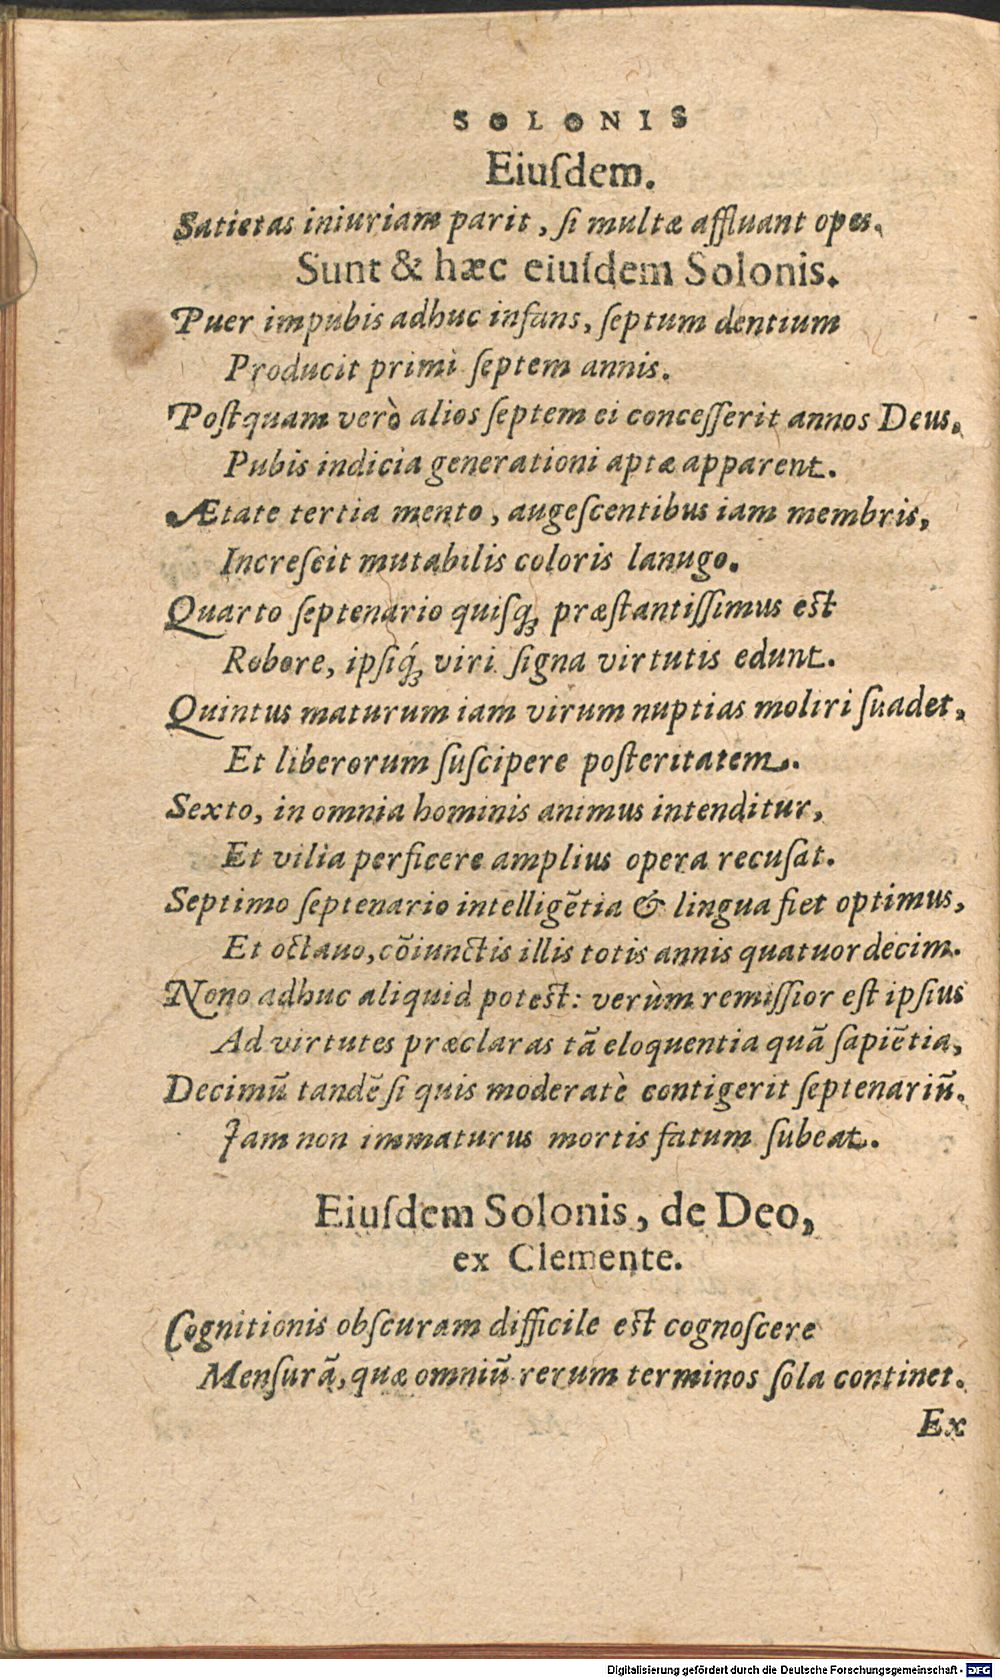 SOLONIS
Eiuſdem.
Satietas iniuriam parit, ſi multæ affluant opes.
Sunt & hæc eiuſdem Solonis.
Puer impubis adhuc infans, ſeptum dentium
Producit primi ſeptem annis.
Poſtquam verò alios ſeptem ei conceſſerit annos Deus,
Pubis indicia generationi aptæ apparent.
Ætate tertia mento, augeſcentibus iam membris,
Increſcit mutabilis coloris lanugo.
Quarto ſeptenario quiſq; præſtantiſſimus eſt
Robore, ipſiq́; viri ſigna virtutis edunt.
Quintus maturum iam virum nuptias moliri ſuadet,
Et liberorum ſuſcipere poſteritatem.
Sexto, in omnia hominis animus intenditur,
Et vilia perficere amplius opera recuſat.
Septimo ſeptenario intelligẽtia & lingua fiet optimus,
Et octauo, cõiunctis illis totis annis quatuordecim.
Nono adhuc aliquid poteſt: verùm remiſſior eſt ipſius
Ad virtutes præclaras tã eloquentia quã ſapiẽtia,
Decimũ tandẽ ſi quis moderatè contigerit ſeptenariũ.
Iam non immaturus mortis fatum ſubeat.
Eiuſdem Solonis, de Deo,
ex Clemente.
Cognitionis obſcuram difficile eſt cognoſcere
Menſurã, quæ omniũ rerum terminos ſola continet.
Ex
Digitalisierung gefördert durch die Deutsche Forschungsgemeinschaft - DFG